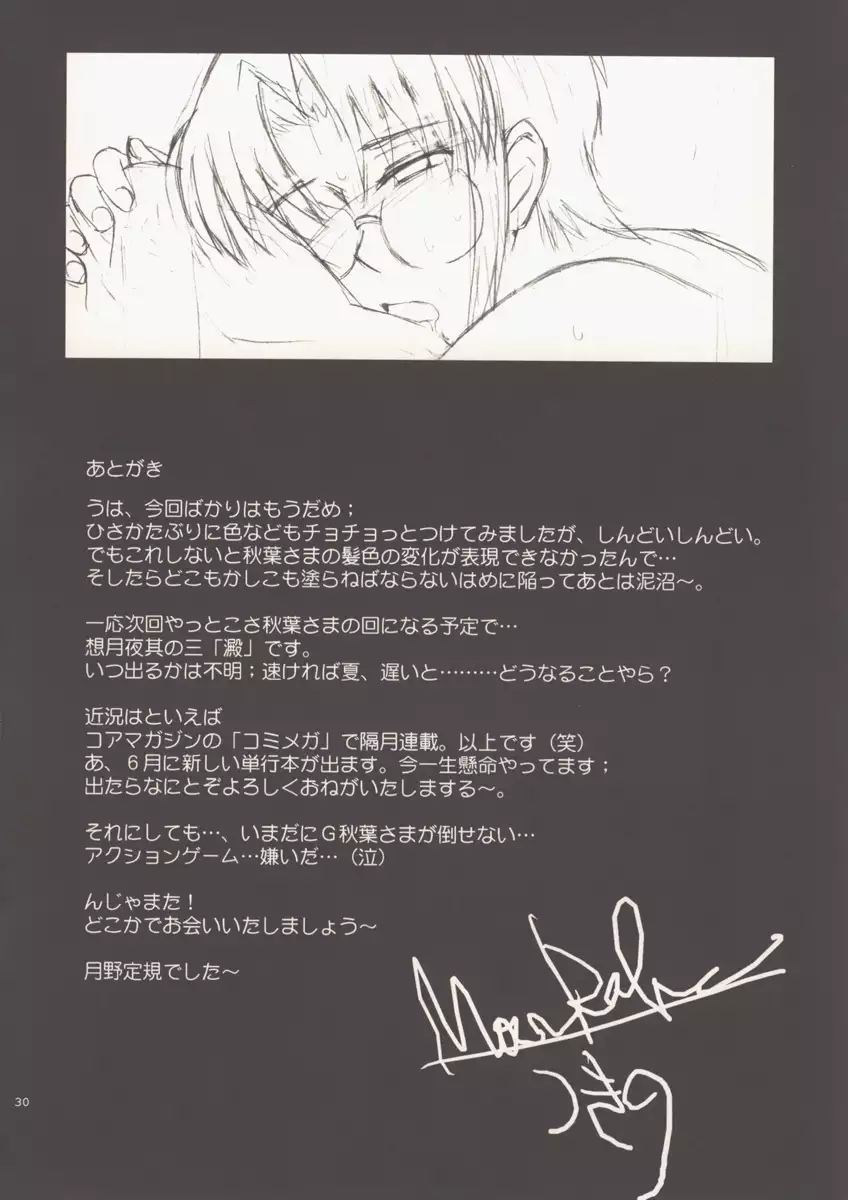 あとがき
うは、今回ばかりはもうだめ；
ひさかたぶりに色などもチョチョっとつけてみましたが、しんどいしんどい。
でもこれしないと秋葉さまの髪色の変化が表現できなかったんで…
そしたらどこもかしこも塗らねばならないはめに陥ってあとは泥沼～。
一応次回やっとこさ秋葉さまの回になる予定で…
想月夜其の三「澱」です。
いつ出るかは不明；速ければ夏、遅いと………どうなることやら？
近況はといえば
コアマガジンの「コミメガ」で隔月連載。以上です（笑）
あ、６月に新しい単行本が出ます。今一生懸命やってます；
出たらなにとぞよろしくおねがいたしまする～。
それにしても…、いまだにＧ秋葉さまが倒せない…
アクションゲーム…嫌いだ…（泣）
んじゃまた！
どこかでお会いいたしましょう～
月野定規でした～
つきの
30